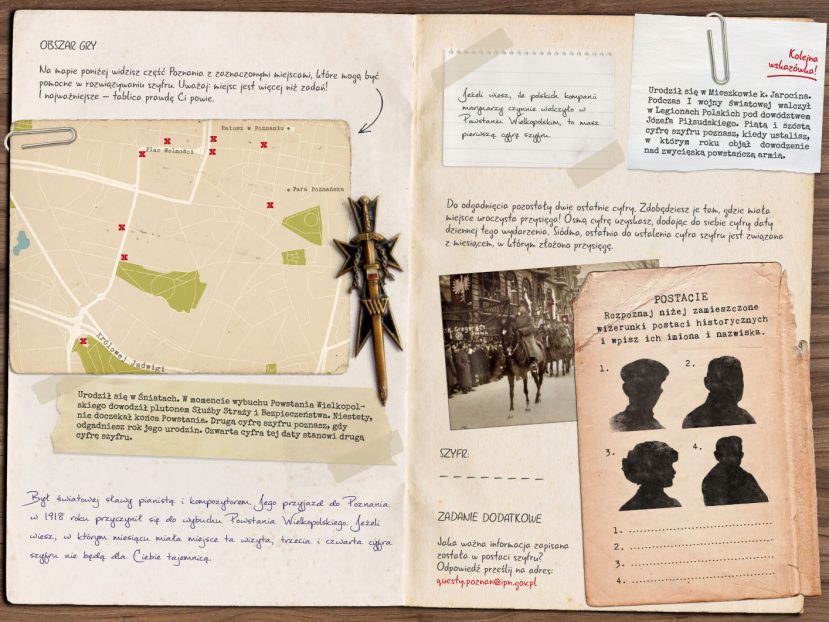 OBSZAR GRY
Na mapie poniżej widzisz część Poznania z zaznaczonymi miejscami, które mogą być
pomocne w rozwiązywaniu szyfru. Uważaj: miejsc jest więcej niż zadań!
I najważniejsze – tablica prawdę Ci powie.
Ratusz w Poznaniu
Plac Wolności
Fara Poznańska
Królowej Jadwigi
Urodził się w Śniatach. W momencie wybuchu Powstania Wielkopol-
skiego dowodził plutonem Służby Straży i Bezpieczeństwa. Niestety,
nie doczekał końca Powstania. Drugą cyfrę szyfru poznasz, gdy
odgadniesz rok jego urodzin. Czwarta cyfra tej daty stanowi drugą
cyfrę szyfru.
Był światowej sławy pianistą i kompozytorem. Jego przyjazd do Poznania
w 1918 roku przyczynił się do wybuchu Powstania Wielkopolskiego. Jeżeli
wiesz, w którym miesiącu miała miejsce ta wizyta, trzecia i czwarta cyfra
szyfru nie będą dla Ciebie tajemnicą.
Jeżeli wiesz, ile polskich kompanii
marynarzy czynnie walczyło w
Powstaniu Wielkopolskim, to masz
pierwszą cyfrę szyfru.
Kolejna
wskazówka!
Urodził się w Mieszkowie k. Jarocina.
Podczas I wojny światowej walczył
w Legionach Polskich pod dowództwem
Józefa Piłsudskiego. Piątą i szóstą
cyfrę szyfru poznasz, kiedy ustalisz,
w którym roku objął dowodzenie
nad zwycięską powstańczą armią.
Do odgadnięcia pozostały dwie ostatnie cyfry. Zdobędziesz je tam, gdzie miała
miejsce uroczysta przysięga! Ósmą cyfrę uzyskasz, dodając do siebie cyfry daty
dziennej tego wydarzenia. Siódma, ostatnia do ustalenia cyfra szyfru jest związana
z miesiącem, w którym złożono przysięgę.
POSTACIE
Rozpoznaj niżej zamieszczone
wizerunki postaci historycznych
i wpisz ich imiona i nazwiska.
1.
2.
3.
4.
1. ..............................
2. ..............................
3. ..............................
4. ..............................
SZYFR:
_ _ _ _ _ _ _ _
ZADANIE DODATKOWE
Jaka ważna informacja zapisana
została w postaci szyfru?
Odpowiedź prześlij na adres:
questy.poznan@ipn.gov.pl